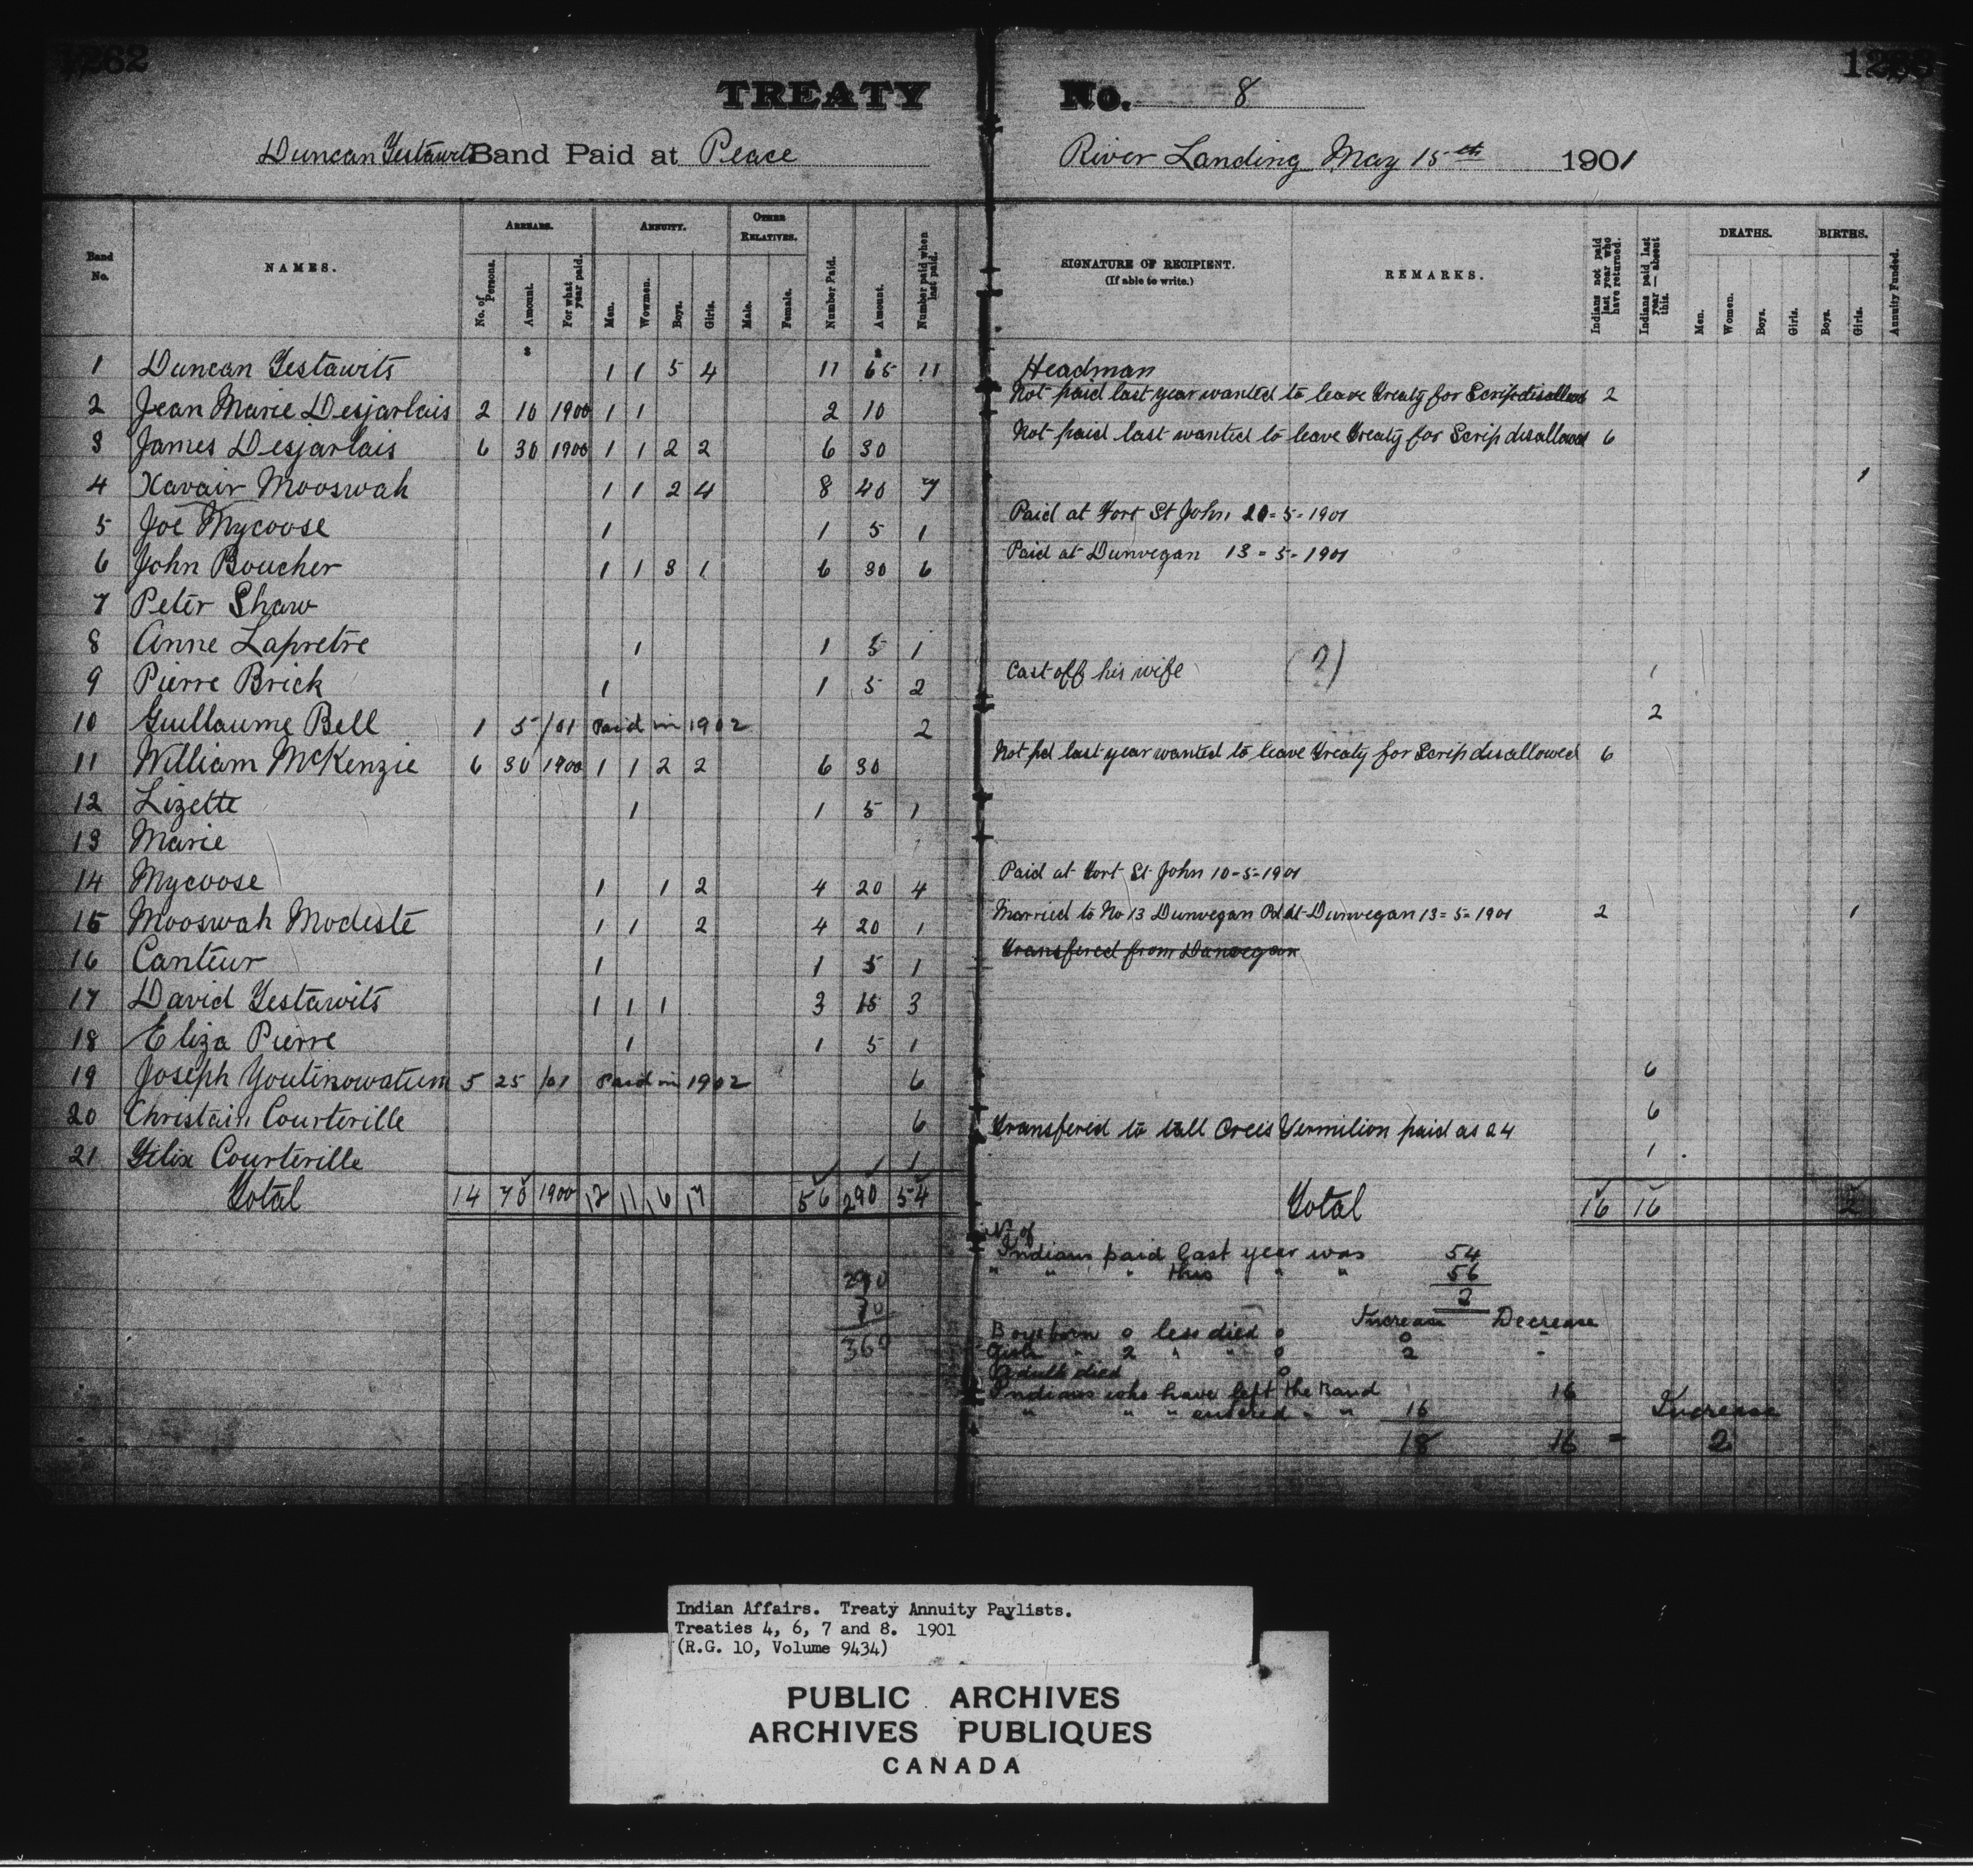 1262
TREATY No. 8
Duncan Testawits Band Paid at Peace River Landing May 15th 1901
Band No. NAMES. ARREARS. ANNUITY. OTHER RELATIVES. Number Paid. Amount. Number paid when last paid. SIGNATURE OF RECIPIENT. (If able to write.) REMARKS. Indians not paid last year who have returned. Indians paid last year — absent this. DEATHS. BIRTHS. Annuity Funded.
No. of Persons. Amount. For what year paid. Men. Wowmen. Boys. Girls. Male. Female. Men. Women. Boys. Girls. Boys. Girls.
1 Duncan Testawits 1 1 5 4 11 65 11 Headman
2 Jean Marie Desjarlais 2 10 1900 1 1 2 10 Not paid last year wanted to leave Treaty for Scrip disallowed 2
3 James Desjarlais 6 30 1900 1 1 2 2 6 30 Not paid last wanted to leave Treaty for Scrip disallowed 6
4 Xavair Mooswah 1 1 2 4 8 40 7 1
5 Joe Mycoose 1 1 5 1 Paid at Fort St John 20-5-1901
6 John Boucher 1 1 3 1 6 30 6 Paid at Dunvegan 13-5-1901
7 Peter Shaw
8 Anne Lapretre 1 1 5 1
9 Pierre Brick 1 1 5 2 Cast off his wife (?) 1
10 Guillaume Bell 1 5 /01 Paid in 1902 2 2
11 William McKenzie 6 30 1900 1 1 2 2 6 30 Not pd last year wanted to leave Treaty for Scrip disallowed 6
12 Lizette 1 1 5 1
13 Marie
14 Mycoose 1 1 2 4 20 4 Paid at Fort St John 10-5-1901
15 Mooswah Modeste 1 1 2 4 20 1 Married to No 13 Dunvegan Pd at Dunvegan 13-5-1901 2 1
16 Canteur 1 1 5 1 Transfered from Dunvegan
17 David Testawits 1 1 1 3 15 3
18 Eliza Pierre 1 1 5 1
19 Joseph Youtinowatum 5 25 /01 Paid in 1902 6 6
20 Christain Courterille 6 Transfered to tall Crees Vermilion paid as 24 6
21 Felix Courterille 1 1
Total 14 70 1900 12 11 16 17 56 290 54 Total 16 16 2
No of
Indians paid last year was 54
" " " this " " 56
2
290
70
360
Increase Decrease
Boys born 0 less died 0 0 -
Girls " 2 " " 0 2 -
Adults died 0
Indians who have left the Band 16
" " " entered " " 16 Increase
18 16 = 2
Indian Affairs. Treaty Annuity Paylists.
Treaties 4, 6, 7 and 8. 1901
(R.G. 10, Volume 9434)
PUBLIC ARCHIVES
ARCHIVES PUBLIQUES
CANADA